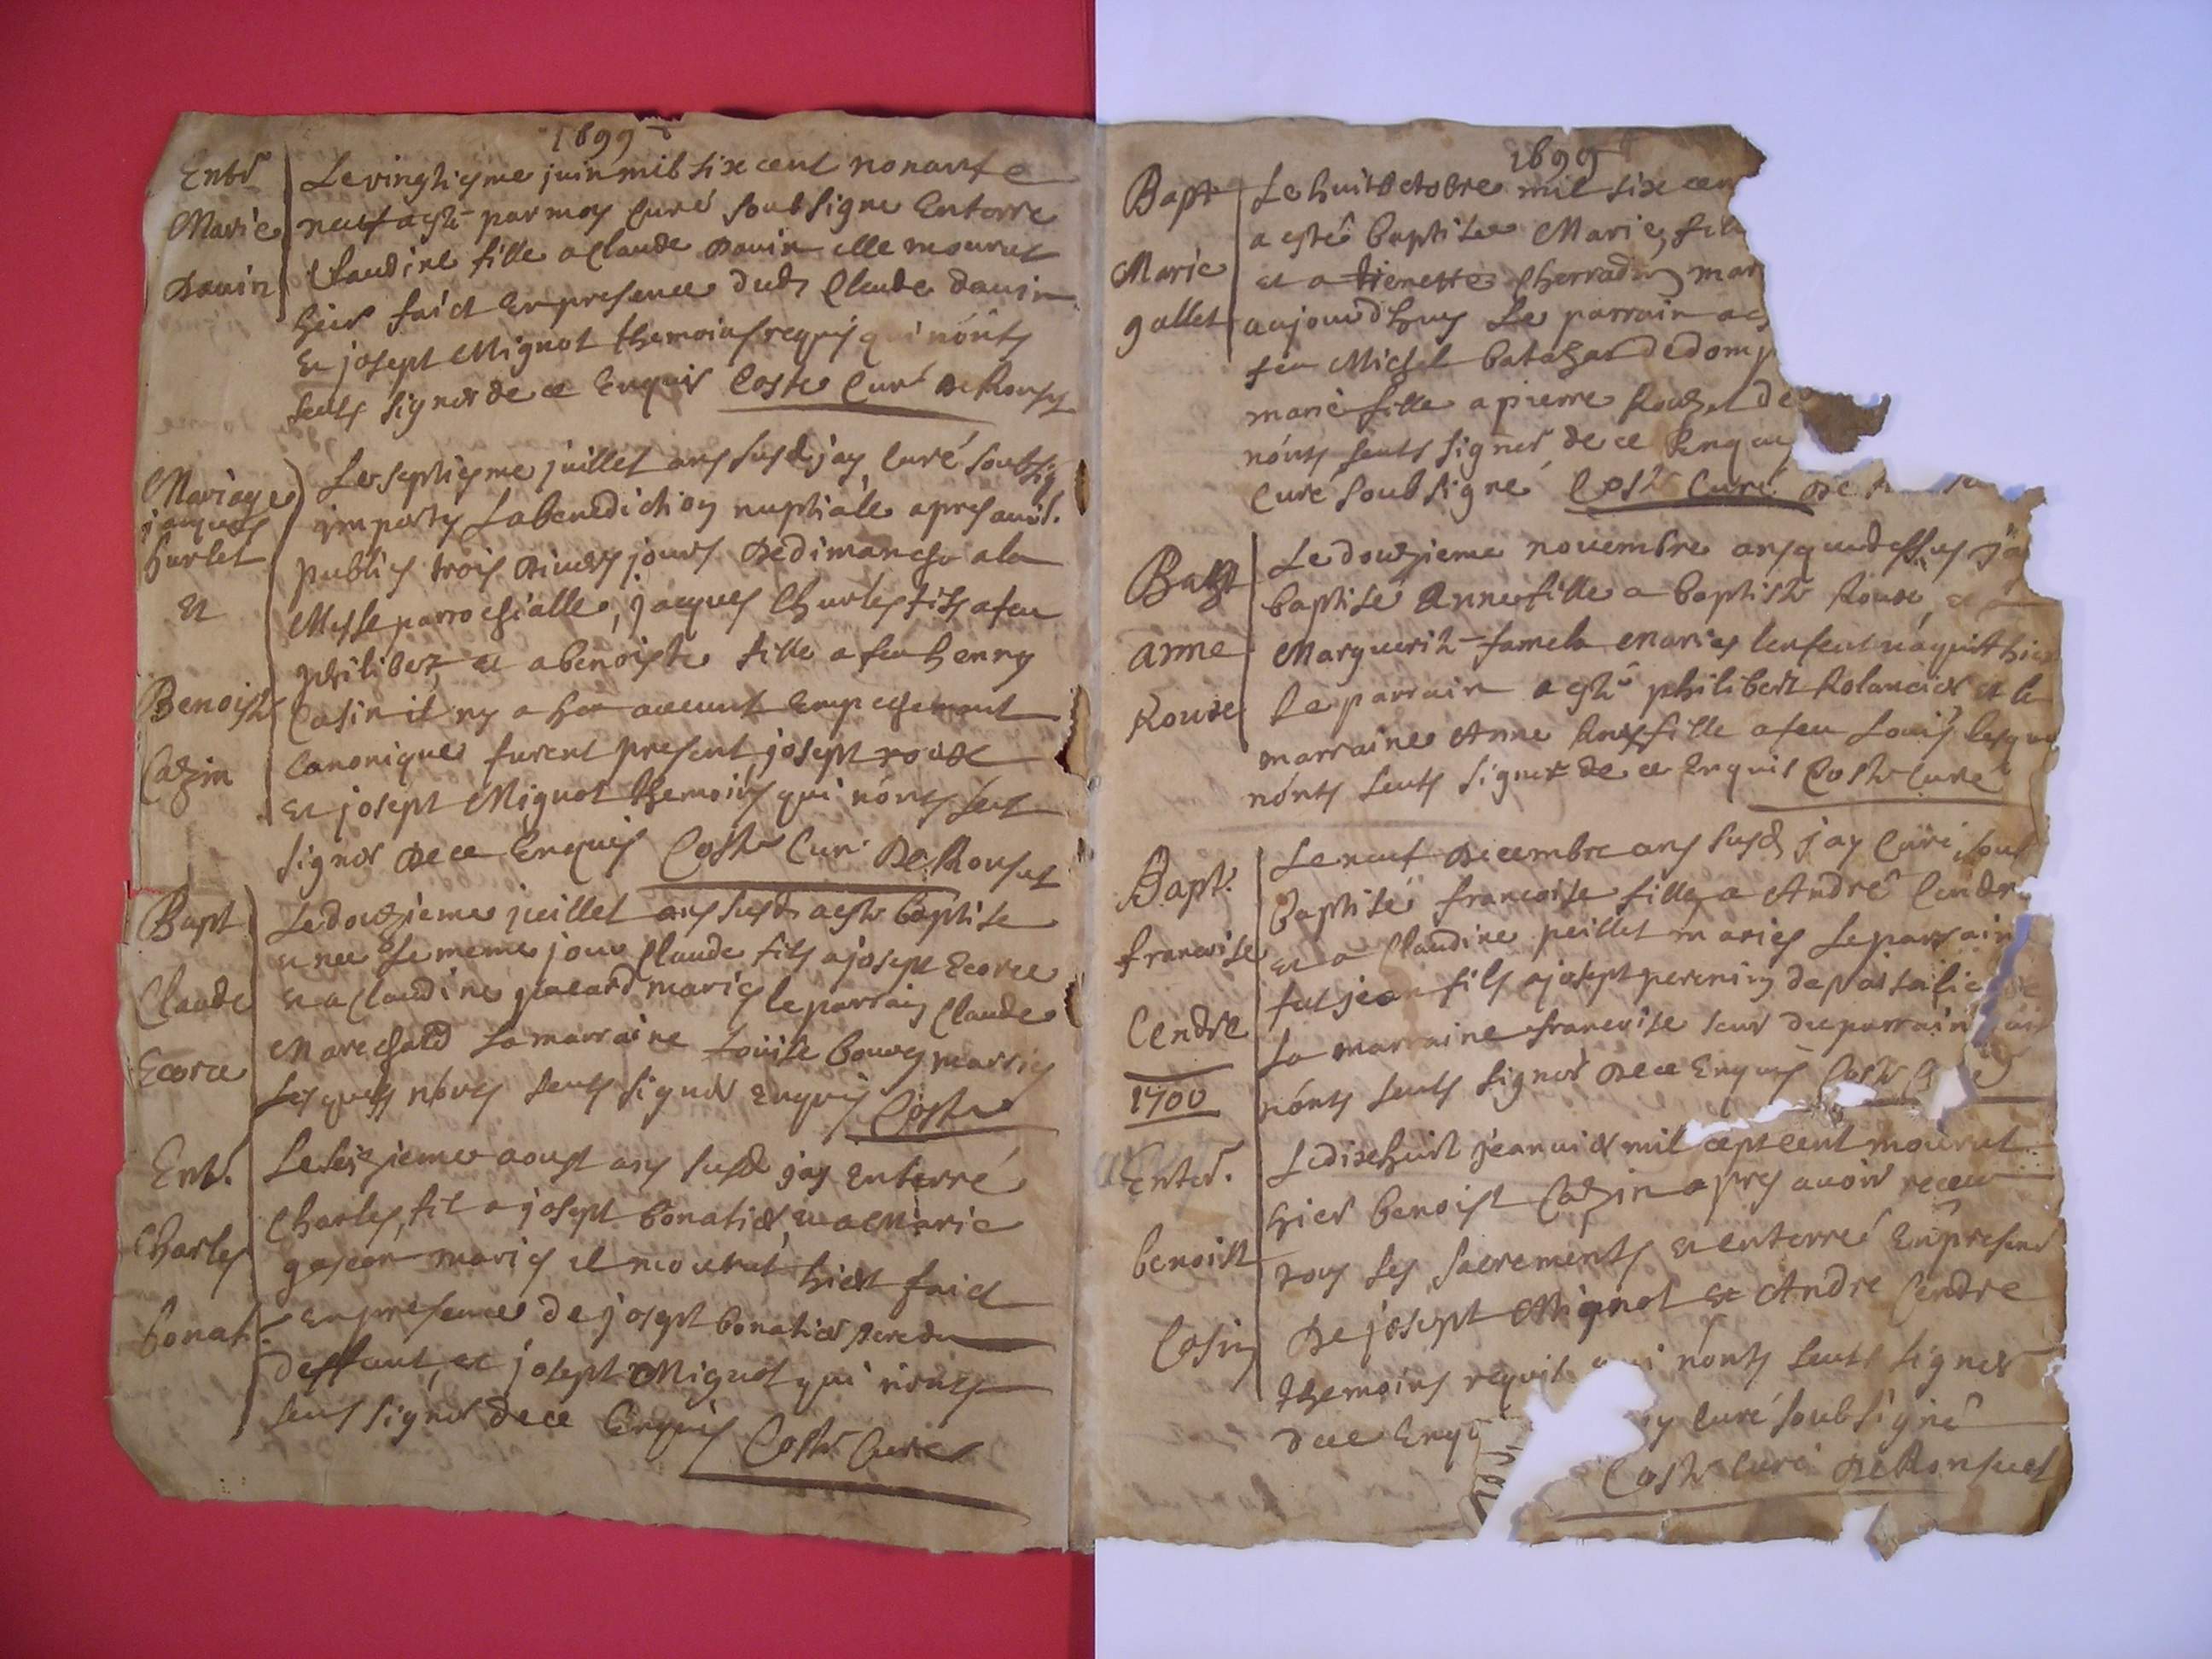 1699
Entr
Marie
Dauin
Le vingtiesme juin mil six cent nonante
neuf a esté par moy curé soubsigne Enterre
Claudine fille a Claude Dauin elle mourut
hier faict En presence dud Claude dauin
et josept Mignot themoins requis qui nónts
seuts signer de ce Enquis Coste Curé De
Mariage
jacques
hurlet
et
Benoiste
Cazin
Le septiesme juillet ans susd jay curé soubsig
imparty La benediction nuptialle apres auoir
publies trois diuers jours De dimanche a la
Messe parrochialle, jacques Churles fils a feu
philibert, et a benoiste fille a feu henry
Casin il ny a heu aucunt Empechement
Canonique furent present josept rouse
et josept Mignot themoins qui nónts seut
signer De ce Enquis Coste Curé De Ronsuet
Bapt
Claude
Ecorce
Le douzieme juillet ans susd a esté baptise
u nee Le meme jour Claude fils a josept Ecorce
et a Claudine maries le parrain Claude
Marechald La marraine Louise bouuey marries
Lesquels nónts seuts signer Enquis Coste
Entr.
Charles
bonati.
Le seizieme aoust ans susd jay Enterré
Charles, fil a josept bonatier, et a Marie
maries il mourut hiert faict
En presence de josept bonatier pere du
deffunt, et josept Mignot qui nónts
seuts signer de ce Enquis Coste Curé
1699
Bapt
Marie
gallet
Le huit octobre mil six cen
a esté baptisee Marie, fill
et a tienette mar
aujourd huy Le parrain a es
feu Michel de domp
marie fille a pierre de
nónts seuts signer de ce Enqu
Curé soubsigné Coste Curé De
Bapt
anne
Rouse
Le douzieme nouembre ans que dessus ja
baptisé Anne fille a baptiste Rouse, et a
Marguerite maries lenfent náquit hier
Le parrain a esté philibert Rolancier et la
marraine Anne fille a feu Louis lesque
nónts seuts signer de ce Enquis Coste Curé
Bapt.
francoise
Cendre
Le neuf Decembre ans susd jay Curé soub
baptisé francoise fille a André Cendr
et a Claudine peillet maries Le parrain
fut jean fils a josept
La marraine francoise seur du parrain
nónts seuts signer De ce Enquis Coste
1700
Enter.
benoist
Casin
Le dixehuit jeanuier mil cept cent mourut
hier benoist Cazin apres auoir receu
tous les sacrements et enterré En presence
De josept Mignot et Andre Cendre
themoins requis qui nónts seuts signer
de ce Enqu y curé soubsigné
Coste Curé De Ronsuet